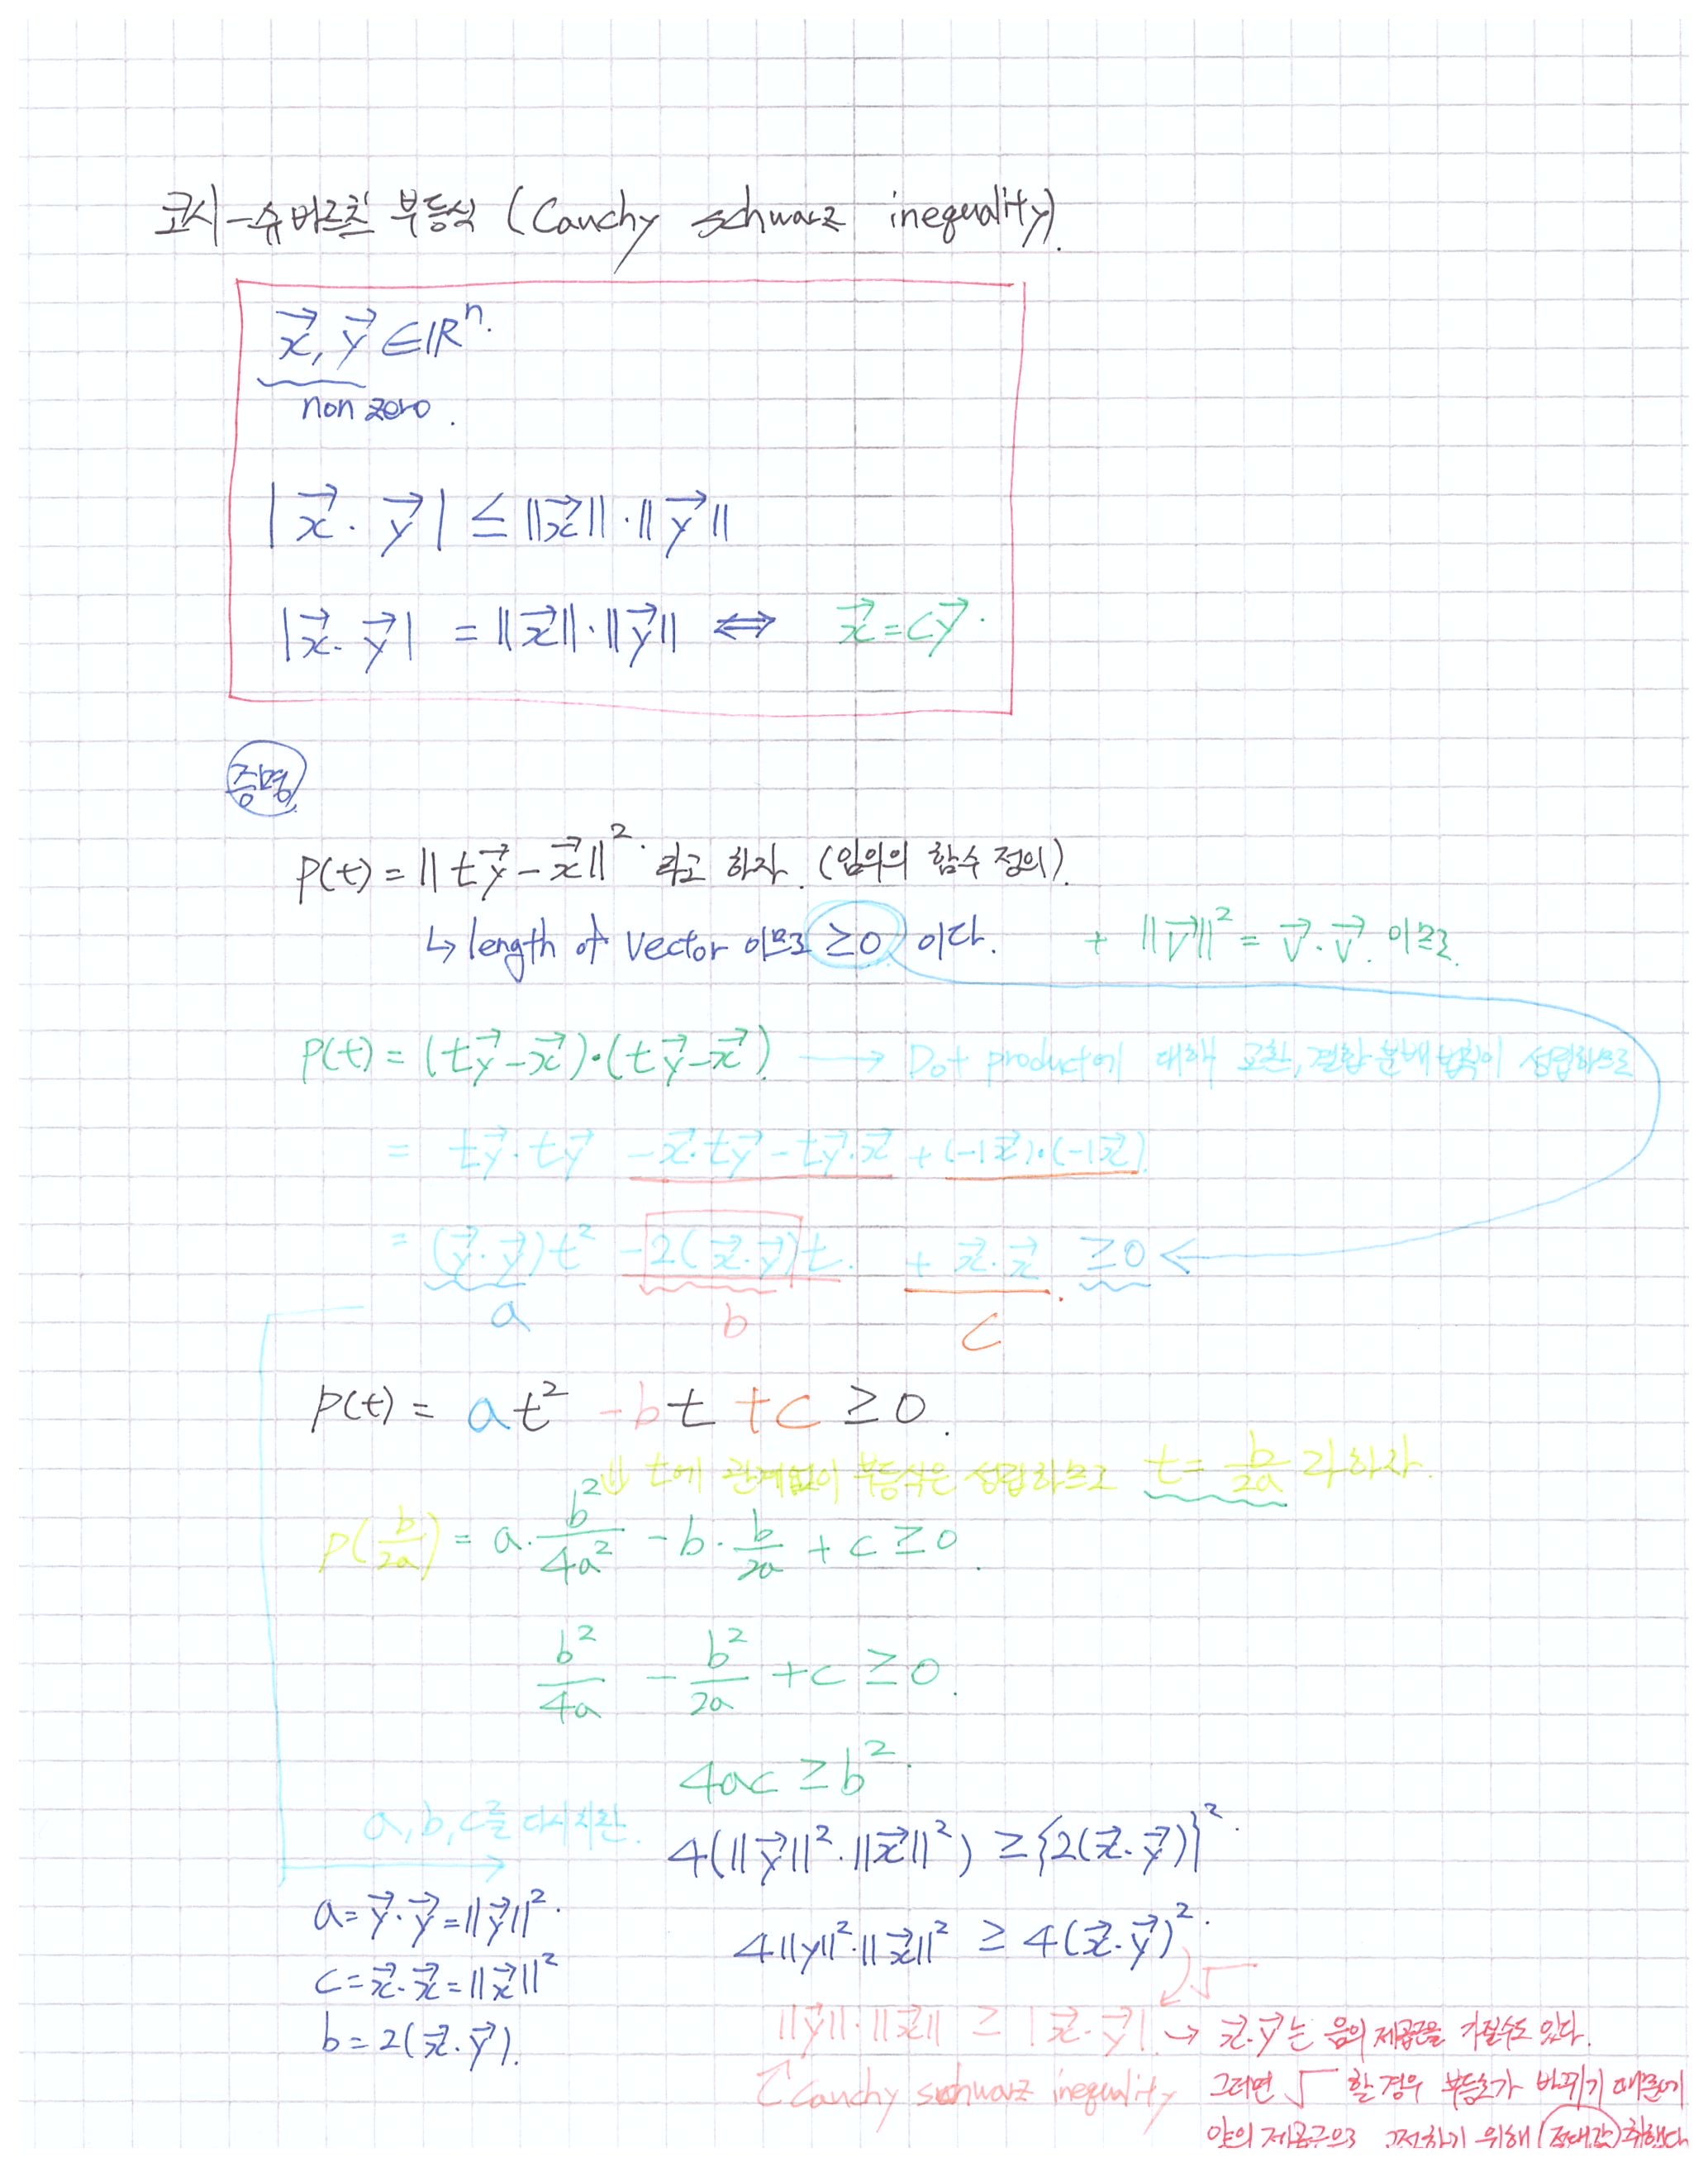 코시-슈바르츠 부등식 (Cauchy schwarz inequality).
x⃗, y⃗ ∈ ℝⁿ.
non zero.
|x⃗ · y⃗| ≤ ||x⃗|| · ||y⃗||
|x⃗ · y⃗| = ||x⃗|| · ||y⃗|| ⇔ x⃗ = cy⃗.
증명
P(t) = ||ty⃗ - x⃗||² 라고 하자. (임의의 함수 정의).
↳ length of vector 이므로 ≥0 이다. + ||v⃗||² = v⃗ · v⃗. 이므로.
P(t) = (ty⃗ - x⃗) · (ty⃗ - x⃗) → Dot product에 대해 교환, 결합 분배법칙이 성립하므로
= ty⃗ · ty⃗ - x⃗ · ty⃗ - ty⃗ · x⃗ + (-1x⃗) · (-1x⃗)
= (y⃗ · y⃗)t² - 2(x⃗ · y⃗)t. + x⃗ · x⃗. ≥0 ←
a b c
P(t) = at² - bt + c ≥ 0.
⇓ t에 관계없이 부등식은 성립하므로 t = b/2a 라하자.
P(b/2a) = a · b²/4a² - b · b/2a + c ≥ 0.
b²/4a - b²/2a + c ≥ 0.
4ac ≥ b².
a, b, c를 다시치환.
4(||y⃗||² · ||x⃗||²) ≥ {2(x⃗ · y⃗)}².
a = y⃗ · y⃗ = ||y⃗||².
4||y||² · ||x⃗||² ≥ 4(x⃗ · y⃗)².
c = x⃗ · x⃗ = ||x⃗||²
√
b = 2(x⃗ · y⃗).
||y⃗|| · ||x⃗|| ≥ |x⃗ · y⃗|. → x⃗ · y⃗는 음의 제곱근을 가질수도 있다.
↑ Cauchy schwarz inequality 그러면 √ 할 경우 부등호가 바뀌기 때문에
양의 제곱근으로 위해 (절대값) 취했다